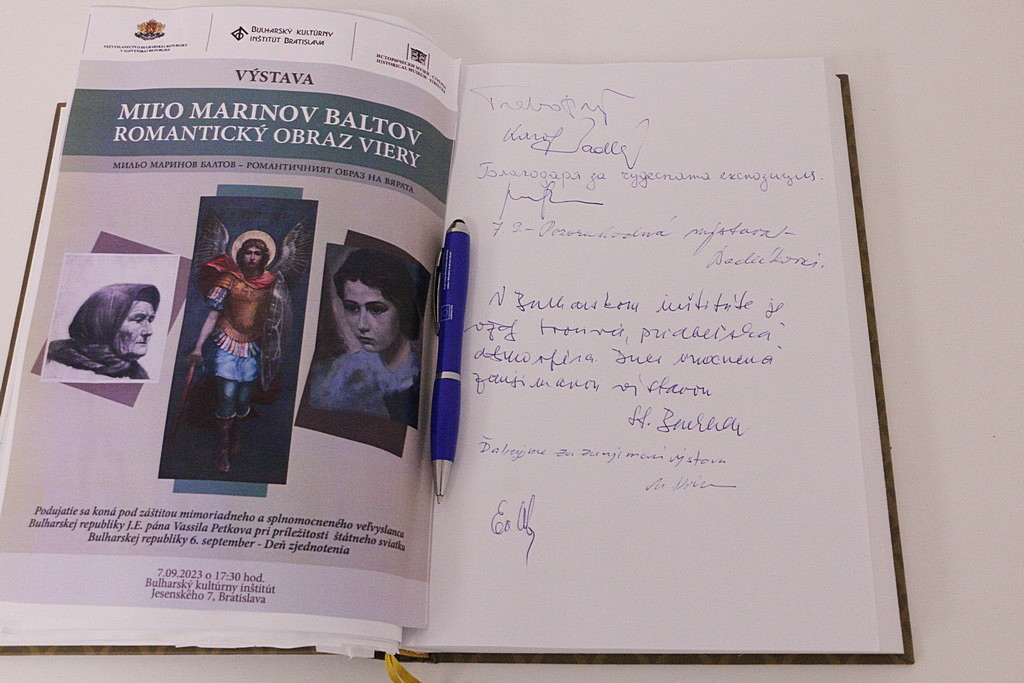 VEĽVYSLANECTVO BULHARSKEJ REPUBLIKY
V SLOVENSKEJ REPUBLIKE
BULHARSKÝ KULTÚRNY
INŠTITÚT BRATISLAVA
ИСТОРИЧЕСКИ МУЗЕЙ
HISTORICAL MUSEUM
VÝSTAVA
MIĽO MARINOV BALTOV
ROMANTICKÝ OBRAZ VIERY
МИЛЬО МАРИНОВ БАЛТОВ – РОМАНТИЧНИЯТ ОБРАЗ НА ВЯРАТА
Podujatie sa koná pod záštitou mimoriadneho a splnomocneného veľvyslanca
Bulharskej republiky J.E. pána Vassila Petkova pri príležitosti štátneho sviatku
Bulharskej republiky 6. september - Deň zjednotenia
7.09.2023 o 17:30 hod.
Bulharský kultúrny inštitút
Jesenského 7, Bratislava
Karol
Благодаря за чудесната експозиция.
7.9. - Pozoruhodná výstava -
V Bulharskom inštitúte je
vždy tvorivá, priateľská
atmosféra. Dnes umocnená
zaujímavou výstavou
St.
Ďakujeme za zaujímavú výstavu